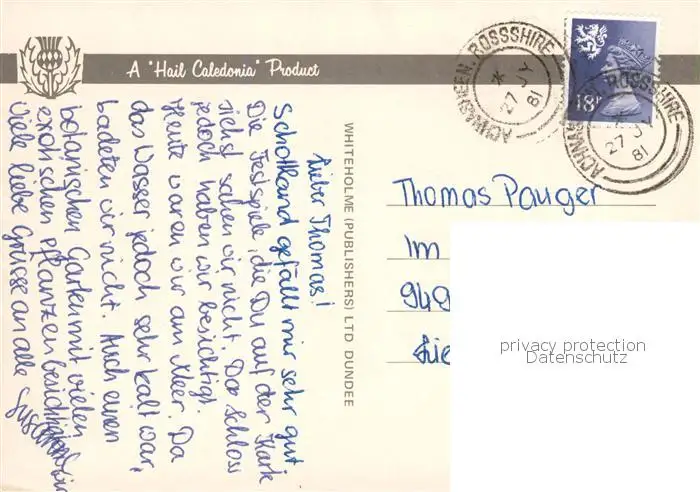 A "Hail Caledonia" Product
ACHNASHEEN. ROSSSHIRE
27 JY
81
18P
ACHNASHEEN. ROSSSHIRE
27 J
81
Lieber Thomas!
Schottland gefällt mir sehr gut.
Die Festspiele, die Du auf der Karte
siehst sahen wir nicht. Das Schloss
jedoch haben wir besichtigt.
Heute waren wir am Meer. Da
das Wasser jedoch sehr kalt war,
badeten wir nicht. Auch einen
botanischen Garten mit vielen
exotischen Pflanzen besichtigten wir
Viele liebe Grüsse an alle
WHITEHOLME (PUBLISHERS) LTD DUNDEE
Thomas Pauger
Im
949
Lie
privacy protection
Datenschutz